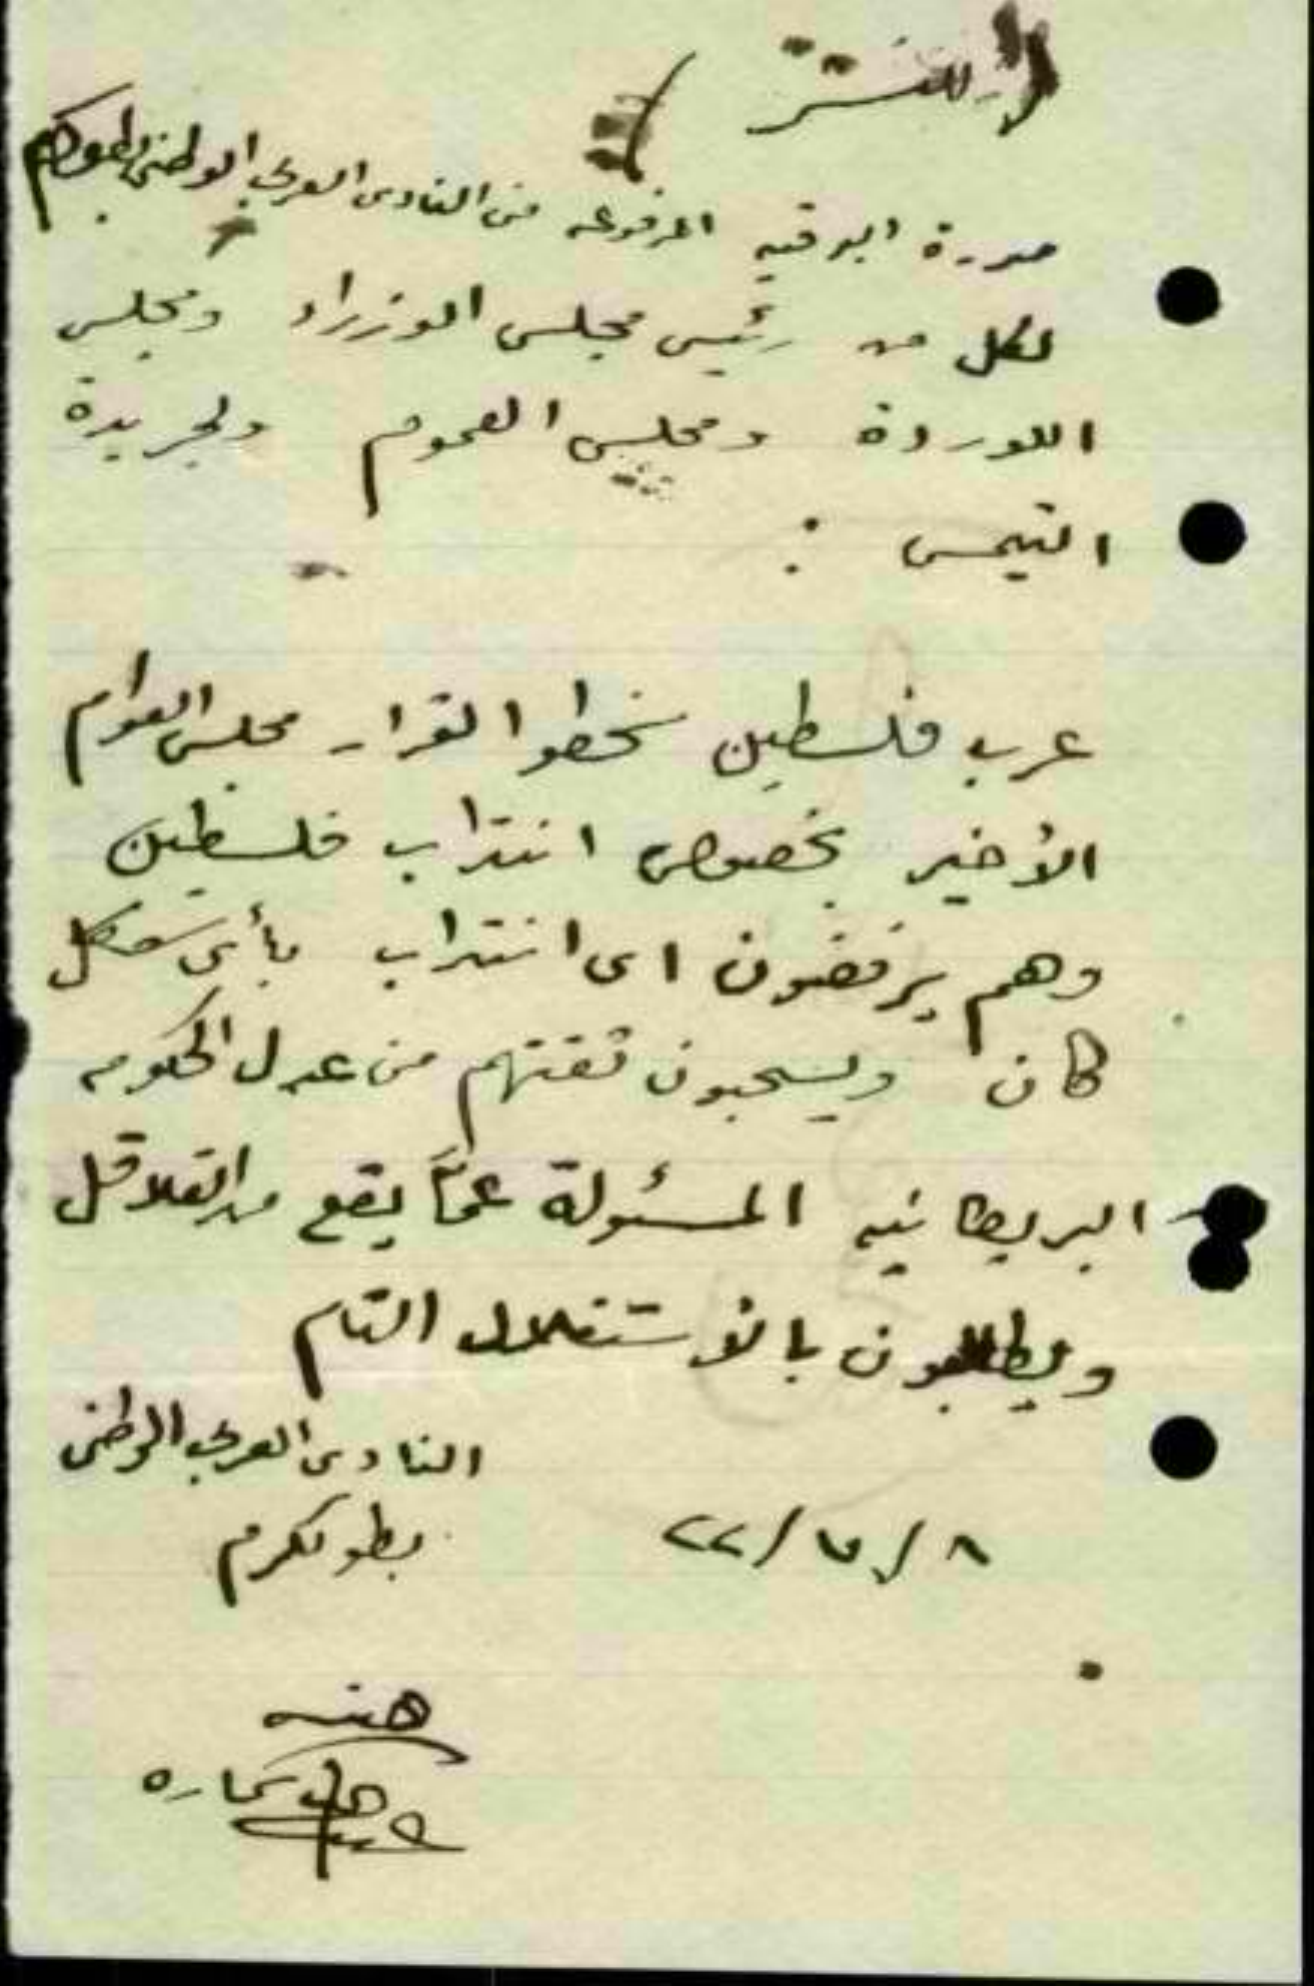 للنشر
صورة البرقيه المرفوعه من النادى العربي الوطني بطولكرم
لكل من رئيس مجلس الوزراء ومجلس
اللوردة ومجلس العموم ولجريدة
التيمس :
عرب فلسطين سخطوا لقرار مجلس العوام
الأخير بخصوص انتداب فلسطين
وهم يرفضون اى انتداب بأى شكل
كان ويسحبون ثقتهم من عدل الحكومه
البريطانيه المسئولة عمّا يقع من القلاقل
ويطالبون بالأستقلال التام
النادى العربي الوطنى
بطولكرم
٨/٧/٢٢
سماره